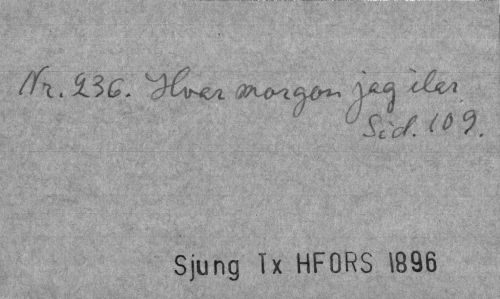 Nr. 236. Hvar morgon jag ilar
Sid. 109.
Sjung Tx HFORS 1896